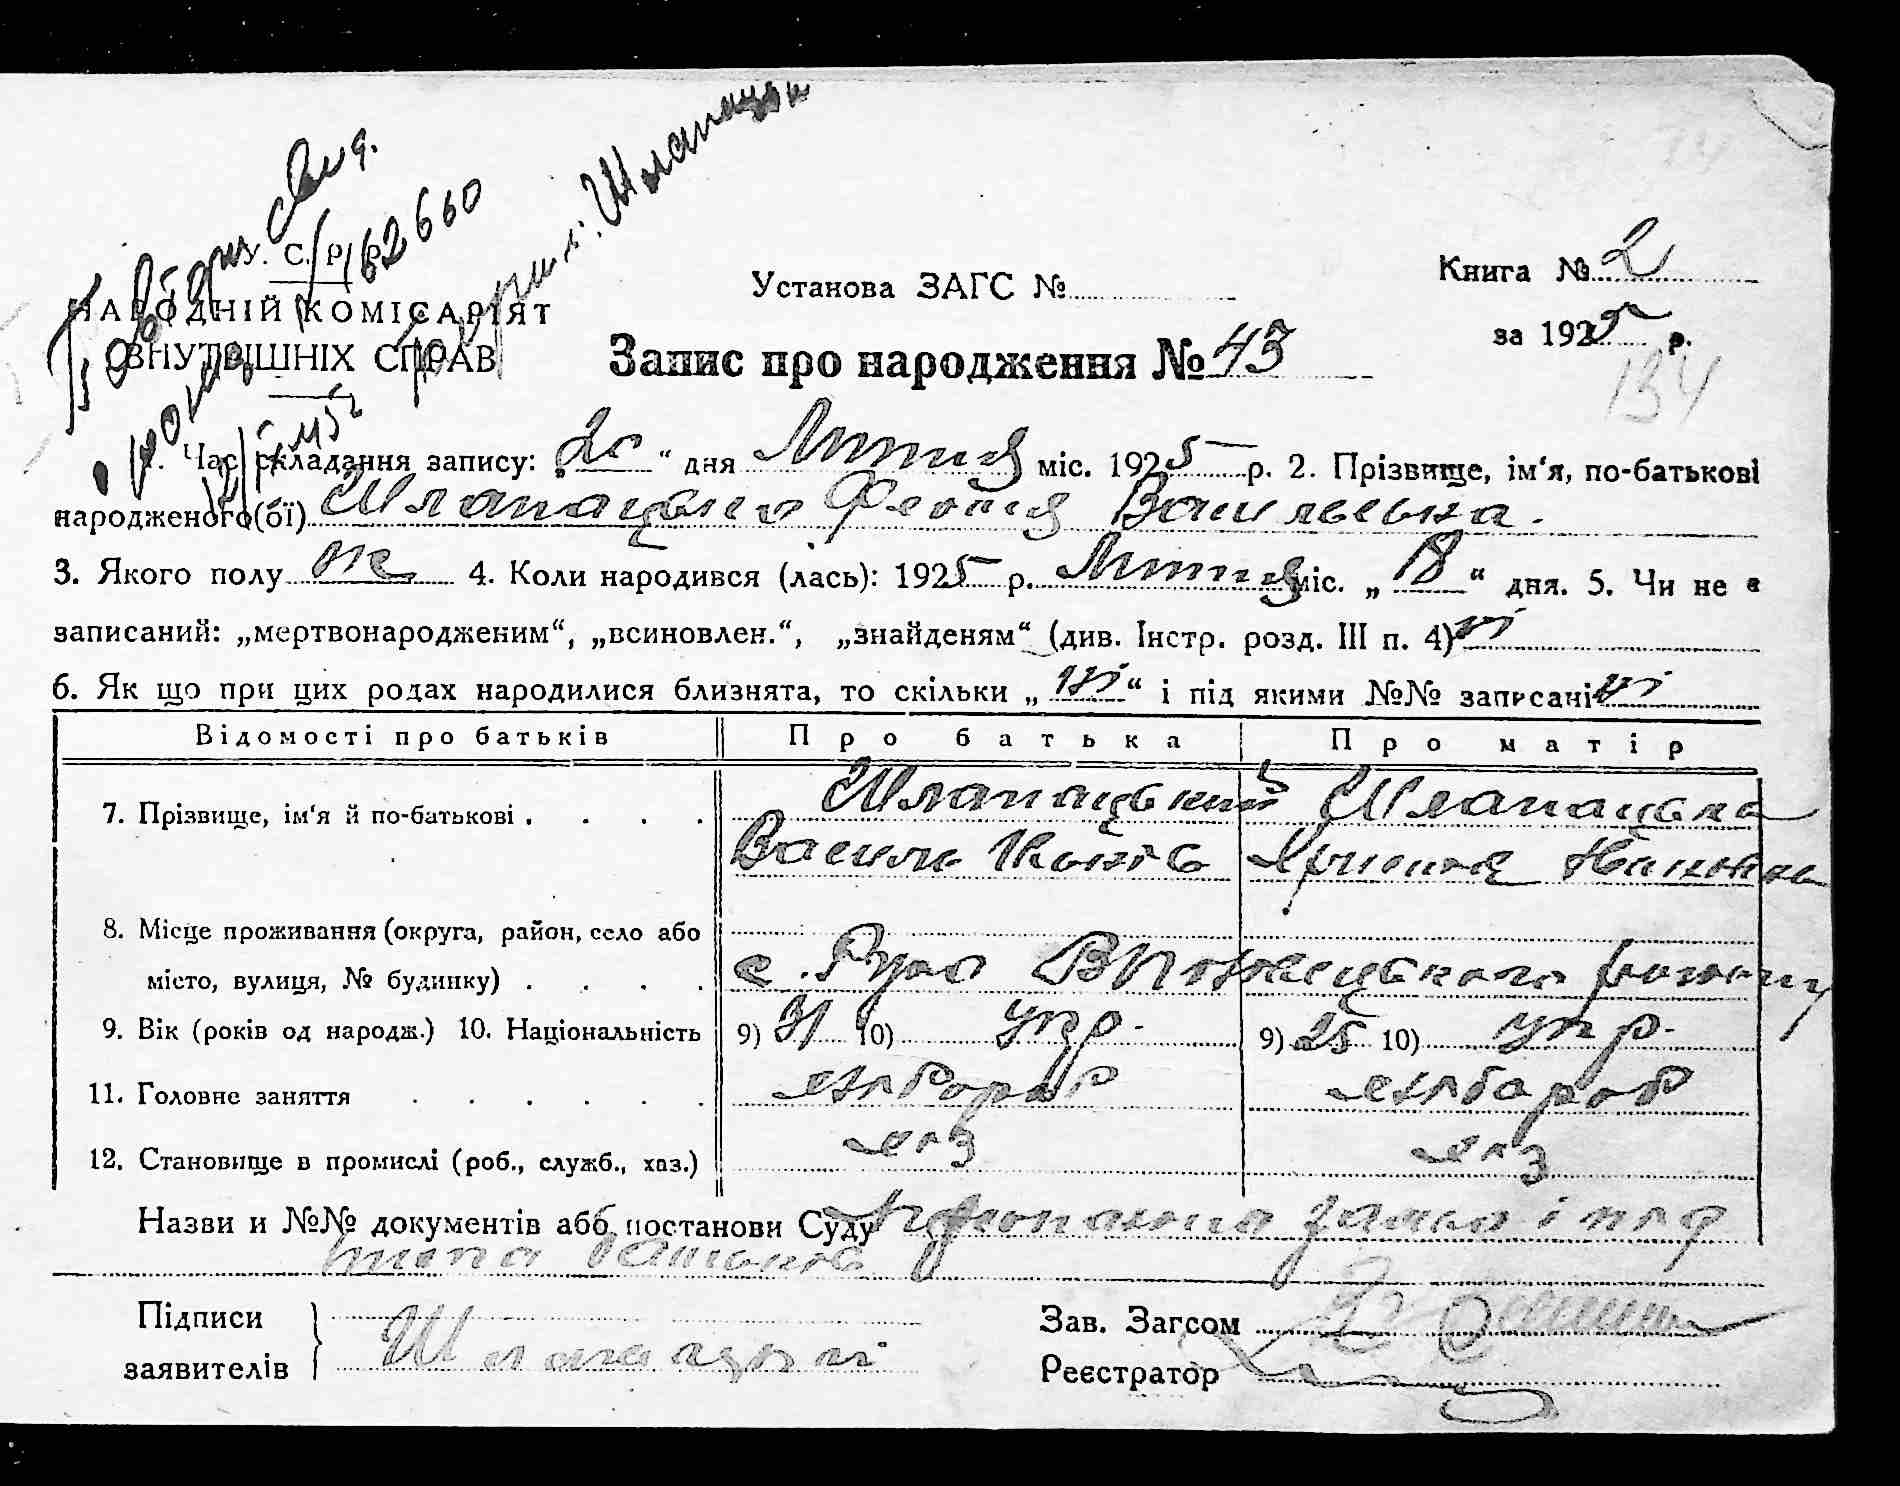 У. С. Р. Р.
НАРОДНІЙ КОМІСАРІЯТ
ВНУТРІШНІХ СПРАВ
Повторн свид.
62660
Шлапацьк
Установа ЗАГС №
Книга № 2
за 1925 р.
134
Запис про народження № 43
1. Час складання запису: „20“ дня Липня міс. 1925 р. 2. Прізвище, ім‘я, по-батькові
народженого(ої) Шлапацька Васильевна.
3. Якого полу ж 4. Коли народився (лась): 1925 р. Липня міс. „18“ дня. 5. Чи не є
записаний: „мертвонародженим“, „всиновлен.“, „знайденям“ (див. Інстр. розд. III п. 4) ні
6. Як що при цих родах народилися близнята, то скільки „ні“ і під якими №№ записані ні
Відомості про батьків Про батька Про матір
7. Прізвище, ім‘я й по-батькові . . . . Шлапацький Шлапацька
Василь Іванівна
8. Місце проживання (округа, район, село або
місто, вулиця, № будинку) . . . . с. району
9. Вік (років од народж.) 10. Національність 9) 31 10) укр. 9) 25 10) укр.
11. Головне заняття . . . . . . хлібороб хлібороб
12. Становище в промислі (роб., служб., хаз.) хаз хаз
Назви и №№ документів або постанови Суду
батьків
Підписи
заявителів
Шлапацький
Зав. Загсом
Реєстратор